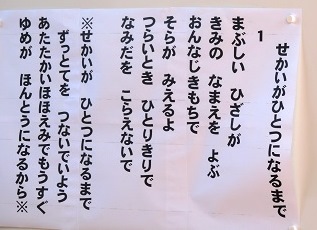 せかいがひとつになるまで
1
まぶしい ひざしが
きみの なまえを よぶ
おんなじきもちで
そらが みえるよ
つらいとき ひとりきりで
なみだを こらえないで
※せかいが ひとつになるまで
ずっとてを つないでいよう
あたたかいほほえみでもうすぐ
ゆめが ほんとうになるから※